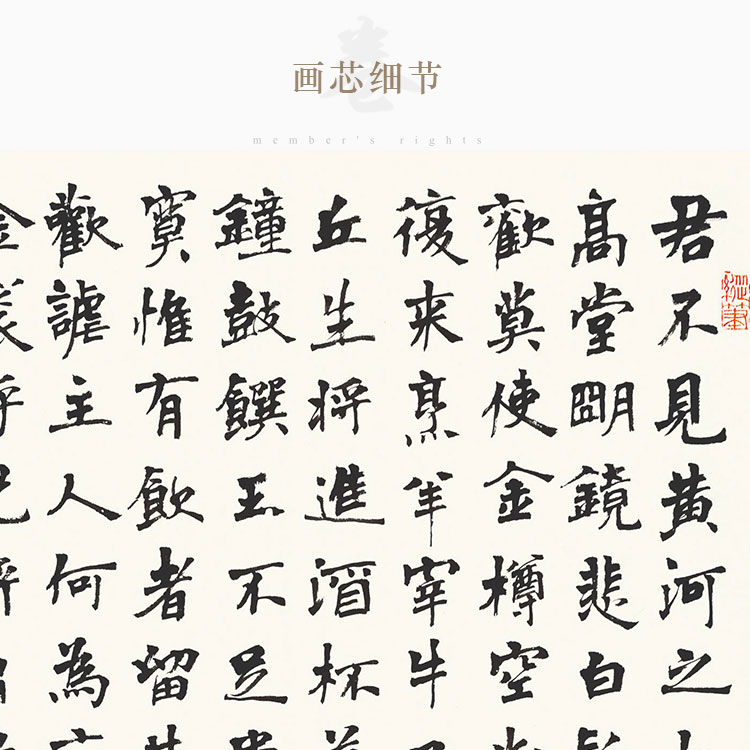 画芯细节
member's rights
君不見黄河之
高堂朙鏡悲白
歡莫使金樽空
復来烹羊宰牛
丘生将進酒杯
鐘鼓饌玉不足
寞惟有飲者留
歡謔主人何為